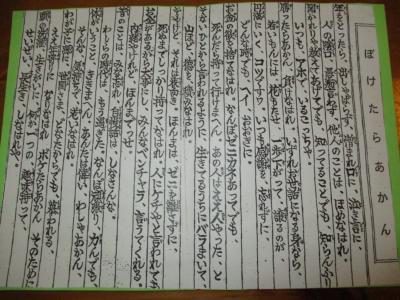 ぼけたらあかん
年をとったら、出しゃばらず、憎まれ口に、泣き言に、
人の陰口、愚痴言わず、他人のことは、ほめなはれ
聞かれりゃ教えてあげてでも、知ってることでも、知らんふり
いつも、アホで、いるこっちゃ。
勝ったらあかん、負けなはれ いずれお世話になる身なら
若いもんには、花もたせ 一歩下がって、譲るのが、
円満にいく、コツですワ。いつも感謝を忘れずに、
どんな時でも、へー、おおきに。
お金の欲を捨てなはれ なんぼゼニカネあってでも、
死んだら持って行けまへん。あの人はええ人やった、と
そないひとから言われるように、生きてるうちにバラまいて、
山ほど、徳を、積みなはれ。
そやけど、それは表向き、ほんまは、ゼニを離さずに、
死ぬまでしっかり持ってなはれ 人にケチやと言われても
お金があるから大事にし、みんなベンチャラ、言うてくれる
内緒やけれど、ほんまでっせ。
昔のことは、みな忘れ 自慢話は、しなさんな。
わしらの時代は、もう過ぎた、なんぼ頑張り、力んでも、
体がいうこと、ききまへん。あんたは偉い、わしゃあかん、
そんな気持ちで、おりなはれ
わが子に孫に、世間さま、どなたからでも、慕われる、
ええ年寄りに、なりなはれ ボケたらあかん そのために
頭の洗濯、生きがいに、何か一つの 趣味持って、
せいぜい、長生き、しなはれや。